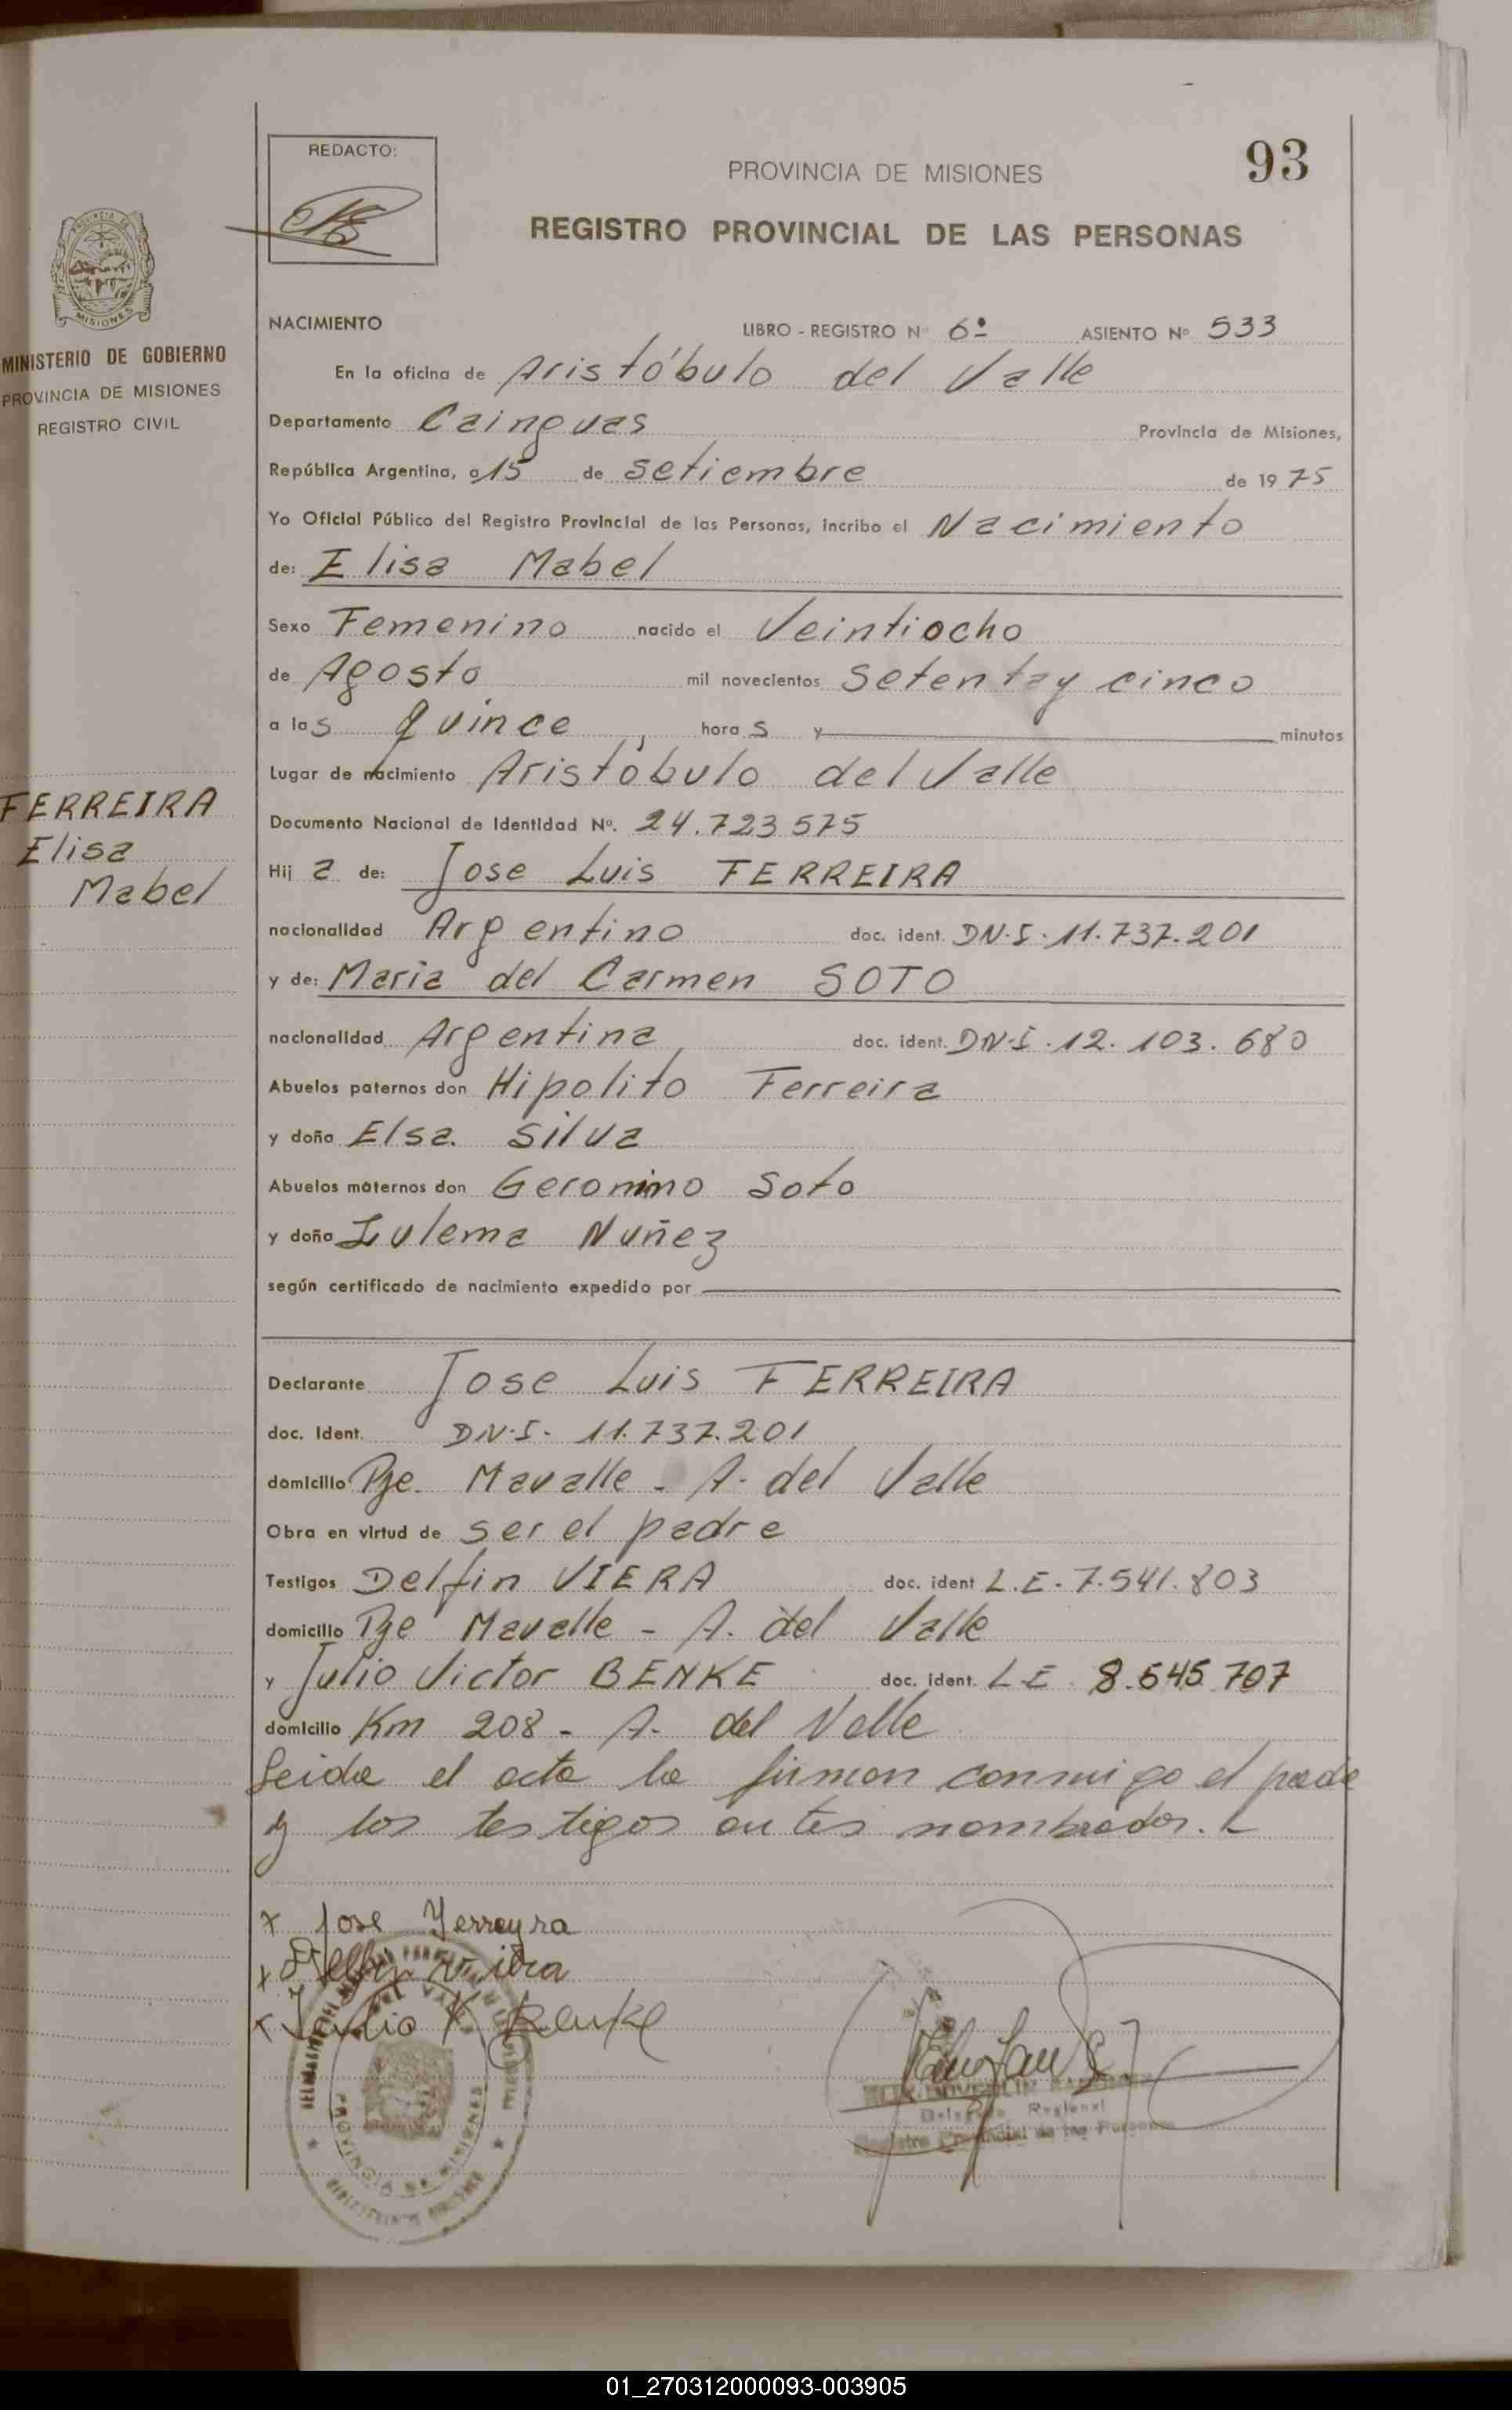 REDACTO:
93
PROVINCIA DE MISIONES
REGISTRO PROVINCIAL DE LAS PERSONAS
MISIONES
MINISTERIO DE GOBIERNO
PROVINCIA DE MISIONES
REGISTRO CIVIL
NACIMIENTO LIBRO - REGISTRO Nº 6º ASIENTO Nº 533
En la oficina de Aristóbulo del Valle
Departamento Cainguas Provincia de Misiones,
República Argentina, a 15 de Setiembre de 1975
Yo Oficial Público del Registro Provincial de las Personas, incribo el Nacimiento
de: Elisa Mabel
Sexo Femenino nacido el Veintiocho
de Agosto mil novecientos Setenta y cinco
a las quince horas y minutos
Lugar de nacimiento Aristóbulo del Valle
FERREIRA
Elisa
Mabel
Documento Nacional de Identidad Nº. 24.723575
Hija de: Jose Luis FERREIRA
nacionalidad Argentino doc. ident. DN.I. 11.737.201
y de: Maria del Carmen SOTO
nacionalidad Argentina doc. ident. DN.I. 12.103.680
Abuelos paternos don Hipolito Ferreira
y doña Elsa. Silva
Abuelos maternos don Geronimo Soto
y doña Zulema Nuñez
según certificado de nacimiento expedido por
Declarante Jose Luis FERREIRA
doc. Ident. DN.I. 11.737.201
domicilio Pje. Mavalle - A. del Valle
Obra en virtud de ser el padre
Testigos Delfin VIERA doc. ident L.E. 7.541.803
domicilio Pje Mavalle - A. del Valle
y Julio Victor BENKE doc. ident. L.E 8.545.707
domicilio Km 208 - A. del Valle
Leida el acta la firman conmigo el padre
y los testigos antes nombrados.
x Jose Ferreyra
x Delfin Viera
x Julio V. Benke
PROVINCIA DE MISIONES
Delegado Regional
Registro Provincial de las Personas
01_270312000093-003905